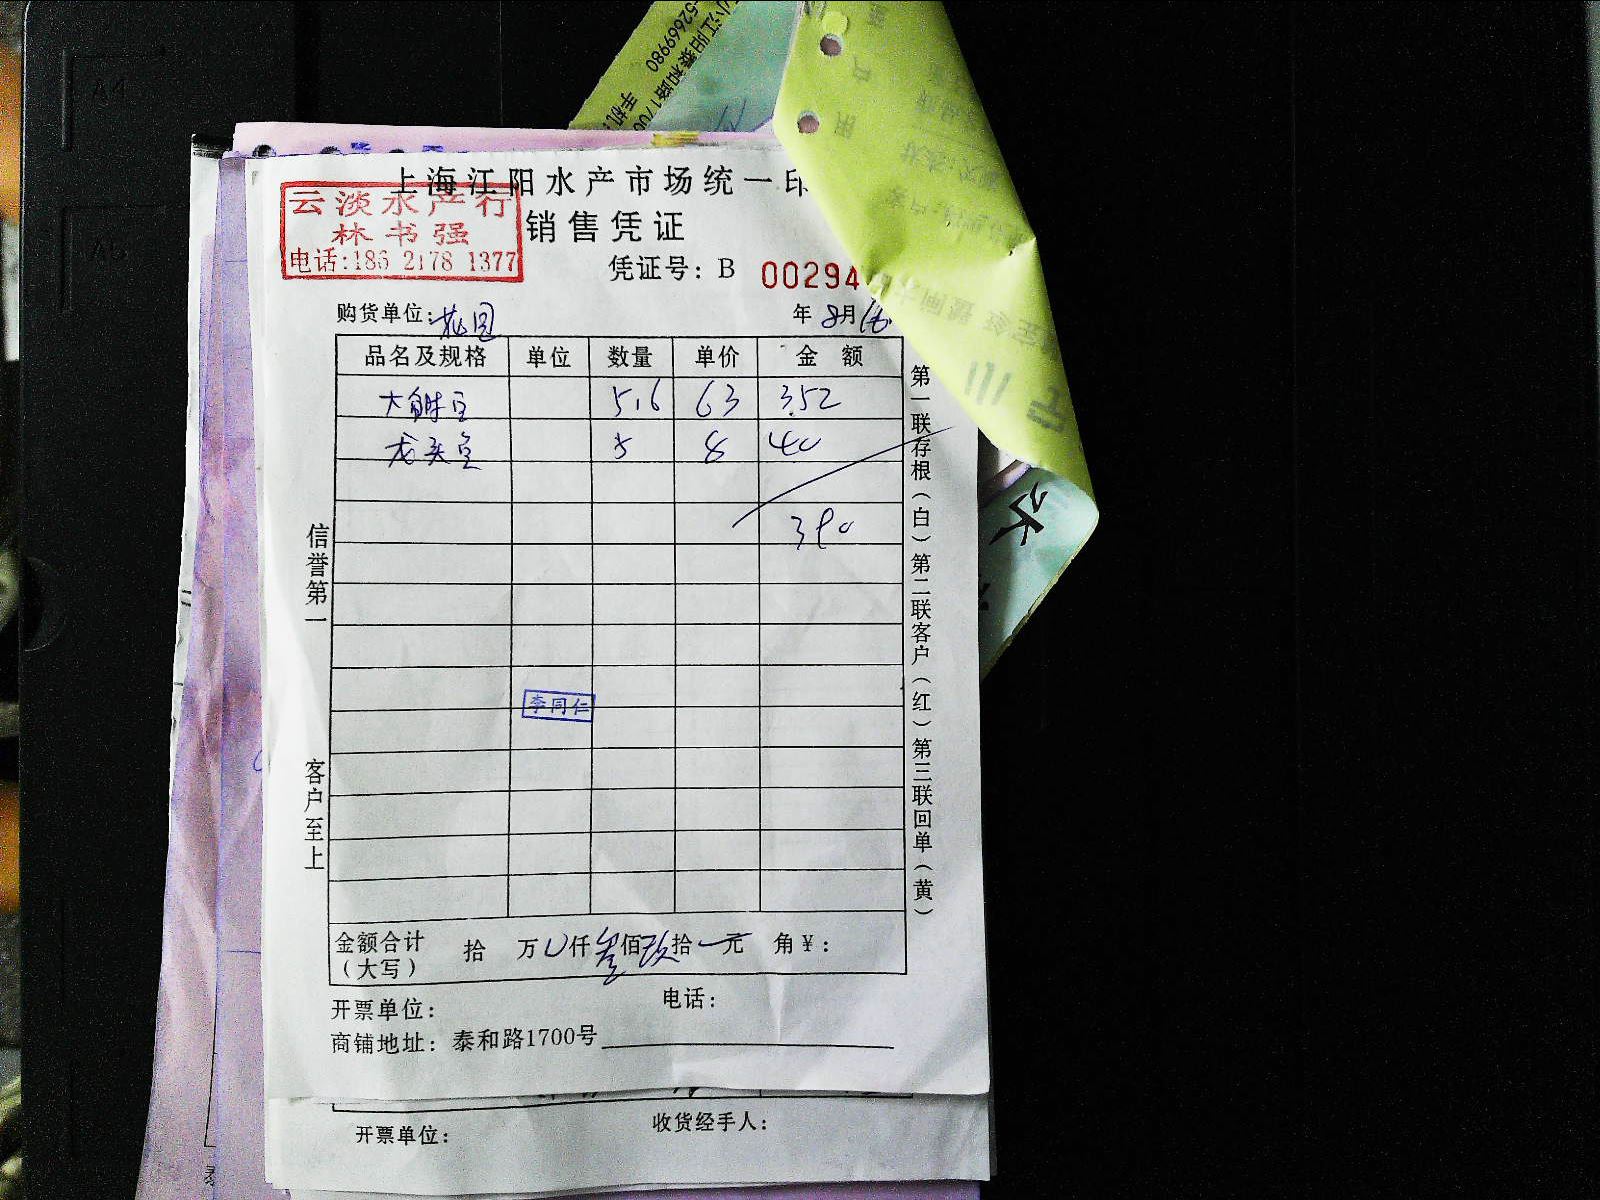 小江阳泰和路1700
52669980
手机
上海江阳水产市场统一印
云淡水产行
林书强
电话:186 2178 1377
销售凭证
凭证号: B 00294
购货单位: 桃园
年 8月16
品名及规格 单位 数量 单价 金 额
5.6 63 352
龙头鱼 5 8 40
390
李同仁
信誉第一
客户至上
第一联存根(白)第二联客户(红)第三联回单(黄)
金额合计 拾 万 仟叁佰玖拾 元 角¥:
(大写)
开票单位: 电话:
商铺地址: 泰和路1700号
开票单位: 收货经手人: